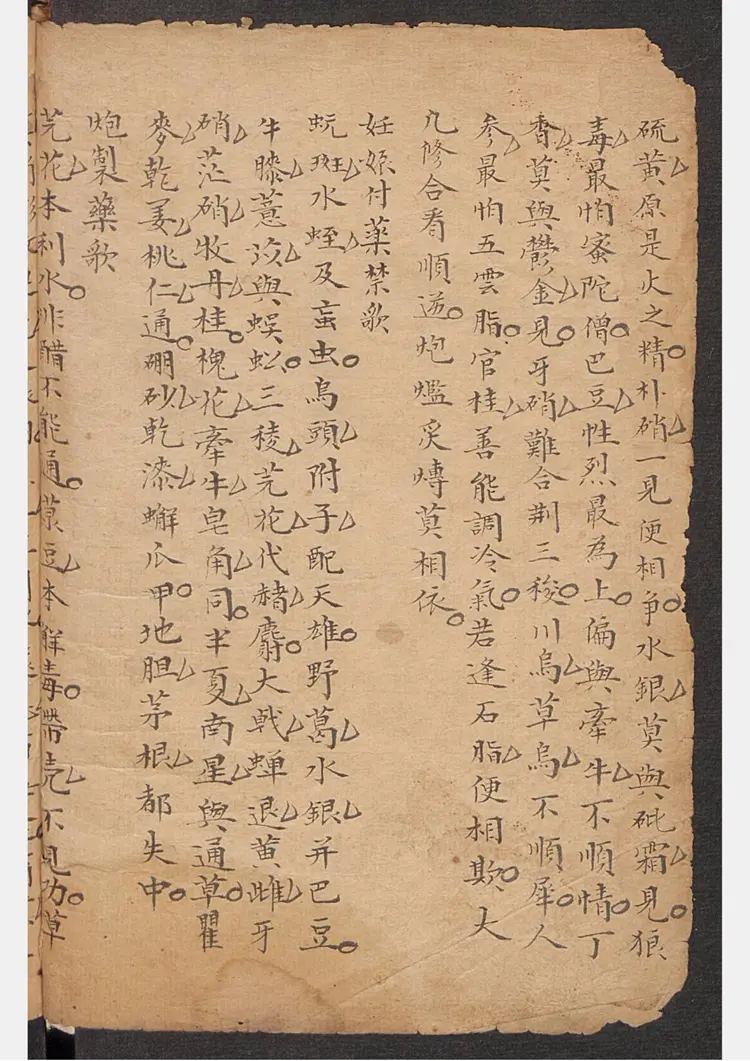 硫黃原是火之精朴硝一見便相争水銀莫與砒霜見狼
毒最怕蜜陀僧巴豆性烈最為上偏與牽牛不順情丁
香莫與鬱金見牙硝難合荆三稜川烏草烏不順犀人
參最怕五雲脂官桂善能調冷氣若逢石脂便相欺大
凢修合看順逆炮爁炙煿莫相依
妊娠付薬禁歌
蚖斑水蛭及䖟虫烏頭附子配天雄野葛水銀并巴豆
牛膝薏苡與蜈蚣三稜芫花代赭麝大戟蟬退黃雌牙
硝茫硝牧丹桂槐花牽牛皂角同半夏南星與通草瞿
麥乾姜桃仁通硼砂乾漆蠏爪甲地胆茅根都失中
炮製藥歌
芫花本利水非醋不能通菉豆本解毒帶壳不見功草